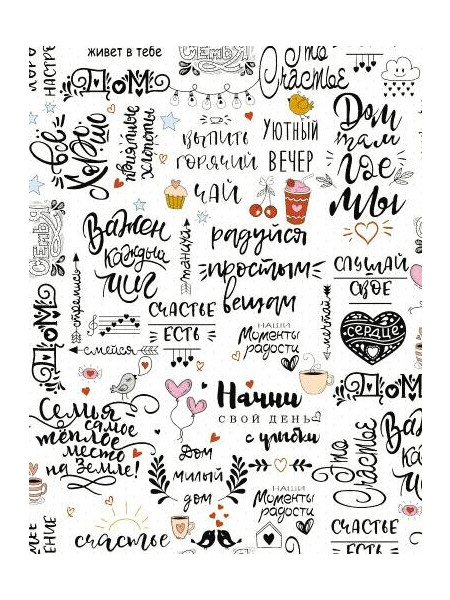 живет в тебе
НАСТРОЕ
Семья
Это
Счастье
Дом
всё
Хорошо
приятные
хлопоты
выпить
горячий
чай
УЮТНЫЙ
ВЕЧЕР
Дом
там
где
мы
Семья
Важен
каждый
миг
танцуй
радуйся
простым
вещам
слушай
своё
сердце
стремись
мечтай
смейся
Дом
СЧАСТЬЕ
ЕСТЬ
НАШИ
Моменты
радости
Семья
самое
тёплое
место
на Земле!
Начни
СВОЙ ДЕНЬ
с улыбки
Дом
милый
дом
Это
Счастье
Дом
Важен
каждый
НАШИ
Моменты
радости
счастье
СЧАСТЬЕ
ЕСТЬ